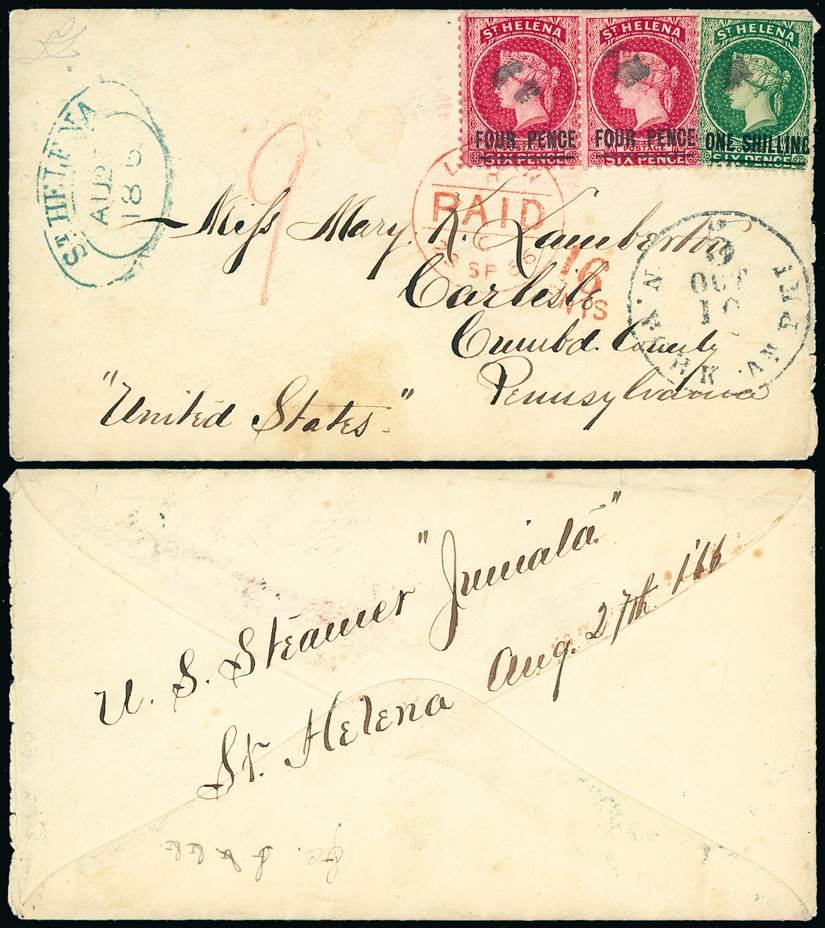 ST HELENA ST HELENA ST HELENA
FOUR PENCE FOUR PENCE ONE SHILLING
SIX PENCE SIX PENCE SIX PENCE
ST HELENA
AU 27
9
PAID
SP 66
16
CENTS
N. YORK AM. PKT.
OCT
10
Miss Mary K. Lamberton
Carlisle
Cumbd. County
Pennsylvania
"United States."
U. S. Steamer "Juniata"
St. Helena Aug. 27th 1'66